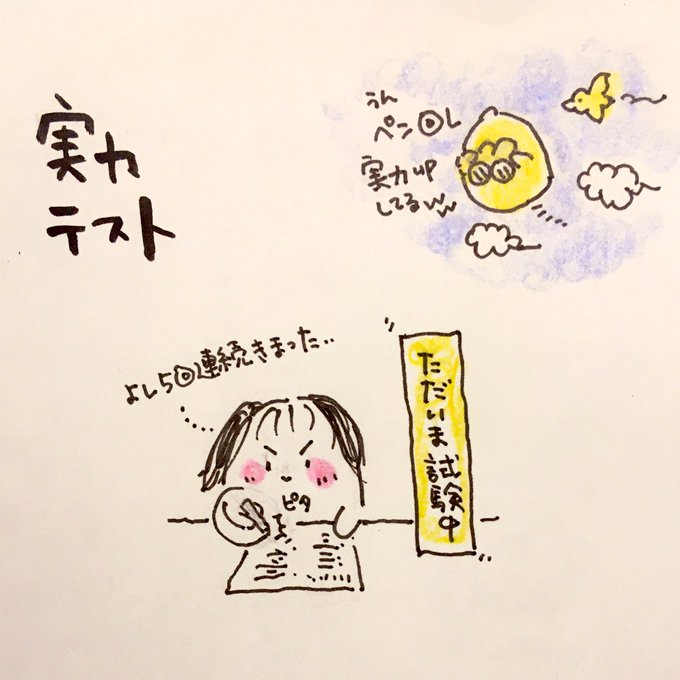 実力
テスト
うん
ペン回し
実力UP
してるww
よし5回連続きまった..
ピタ
ただいま試験中